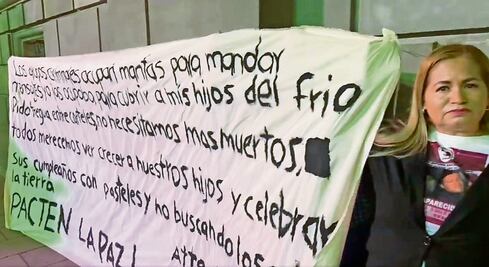 Los grupos criminales ocupan mantas para mandar
mensajes yo las ocupo para cubrir a mis hijos del frio
Pido tregua entre carteles no necesitamos mas muertos,
todos merecemos ver crecer a nuestros hijos y celebrar
Sus cumpleaños con pasteles y no buscandolos
la tierra
PACTEN LA PAZ! Atte
APARECID